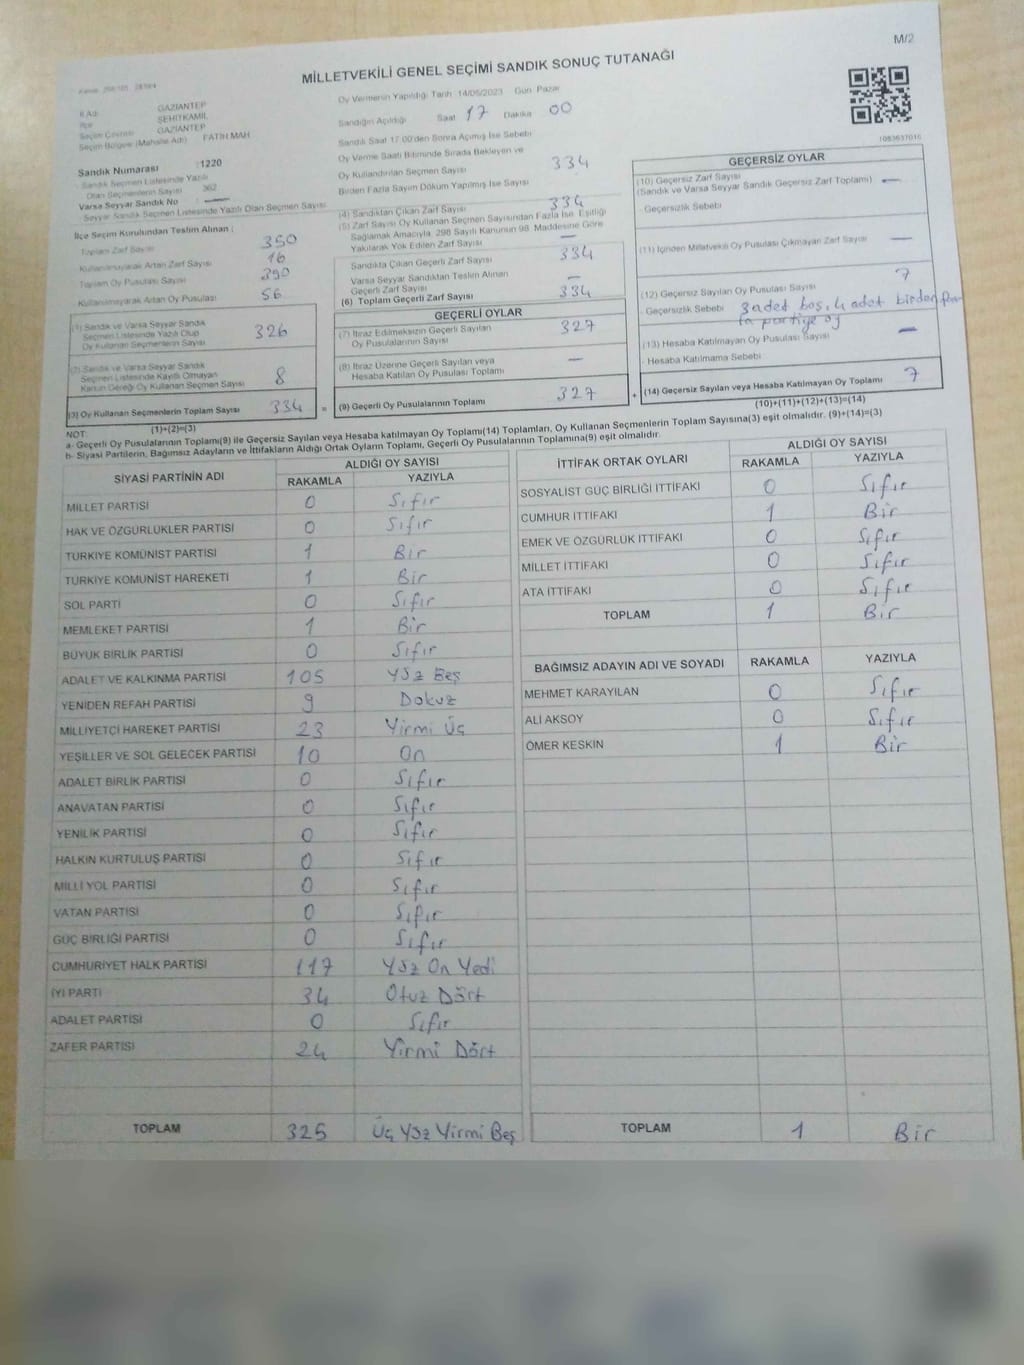 M/2
MİLLETVEKİLİ GENEL SEÇİMİ SANDIK SONUÇ TUTANAĞI
İl Adı GAZİANTEP
İlçe ŞEHİTKAMİL
Seçim Çevresi GAZİANTEP
Seçim Bölgesi (Mahalle Adı) FATİH MAH
Sandık Numarası :1220
Sandık Seçmen Listesinde Yazılı
Olan Seçmenlerin Sayısı 362
Varsa Seyyar Sandık No : —
Seyyar Sandık Seçmen Listesinde Yazılı Olan Seçmen Sayısı
İlçe Seçim Kurulundan Teslim Alınan :
Toplam Zarf Sayısı 350
Kullanılmayarak Artan Zarf Sayısı 16
Toplam Oy Pusulası Sayısı 390
Kullanılmayarak Artan Oy Pusulası 56
(1) Sandık ve Varsa Seyyar Sandık
Seçmen Listesinde Yazılı Olup
Oy Kullanan Seçmenlerin Sayısı 326
(2) Sandık ve Varsa Seyyar Sandık
Seçmen Listesinde Kayıtlı Olmayan
Kanun Gereği Oy Kullanan Seçmen Sayısı 8
(3) Oy Kullanan Seçmenlerin Toplam Sayısı 334 =
(1)+(2)=(3)
Oy Vermenin Yapıldığı Tarih 14/05/2023 Gün Pazar
Sandığın Açıldığı Saat 17 Dakika 00
Sandık Saat 17:00'den Sonra Açılmış İse Sebebi
Oy Verme Saati Bitiminde Sırada Bekleyen ve
Oy Kullandırılan Seçmen Sayısı 334
Birden Fazla Sayım Döküm Yapılmış İse Sayısı
(4) Sandıktan Çıkan Zarf Sayısı 334
(5) Zarf Sayısı Oy Kullanan Seçmen Sayısından Fazla İse, Eşitliği
Sağlamak Amacıyla, 298 Sayılı Kanunun 98. Maddesine Göre
Yakılarak Yok Edilen Zarf Sayısı —
Sandıkta Çıkan Geçerli Zarf Sayısı 334
Varsa Seyyar Sandıktan Teslim Alınan
Geçerli Zarf Sayısı —
(6) Toplam Geçerli Zarf Sayısı 334
GEÇERLİ OYLAR
(7) İtiraz Edilmeksizin Geçerli Sayılan
Oy Pusulalarının Sayısı 327
(8) İtiraz Üzerine Geçerli Sayılan veya
Hesaba Katılan Oy Pusulası Toplamı —
(9) Geçerli Oy Pusulalarının Toplamı 327 +
1083637016
GEÇERSİZ OYLAR
(10) Geçersiz Zarf Sayısı
(Sandık ve Varsa Seyyar Sandık Geçersiz Zarf Toplamı) —
Geçersizlik Sebebi
(11) İçinden Milletvekili Oy Pusulası Çıkmayan Zarf Sayısı —
(12) Geçersiz Sayılan Oy Pusulası Sayısı 7
Geçersizlik Sebebi 3 adet boş, 4 adet birden faz
la partiye oy
(13) Hesaba Katılmayan Oy Pusulası Sayısı —
Hesaba Katılmama Sebebi
(14) Geçersiz Sayılan veya Hesaba Katılmayan Oy Toplamı 7
(10)+(11)+(12)+(13)=(14)
NOT:
a- Geçerli Oy Pusulalarının Toplamı(9) ile Geçersiz Sayılan veya Hesaba katılmayan Oy Toplamı(14) Toplamları, Oy Kullanan Seçmenlerin Toplam Sayısına(3) eşit olmalıdır. (9)+(14)=(3)
b- Siyasi Partilerin, Bağımsız Adayların ve İttifakların Aldığı Ortak Oyların Toplamı, Geçerli Oy Pusulalarının Toplamına(9) eşit olmalıdır.
SİYASİ PARTİNİN ADI ALDIĞI OY SAYISI
RAKAMLA YAZIYLA
MİLLET PARTİSİ 0 Sıfır
HAK VE ÖZGÜRLÜKLER PARTİSİ 0 Sıfır
TÜRKİYE KOMÜNİST PARTİSİ 1 Bir
TÜRKİYE KOMÜNİST HAREKETİ 1 Bir
SOL PARTİ 0 Sıfır
MEMLEKET PARTİSİ 1 Bir
BÜYÜK BİRLİK PARTİSİ 0 Sıfır
ADALET VE KALKINMA PARTİSİ 105 Yüz Beş
YENİDEN REFAH PARTİSİ 9 Dokuz
MİLLİYETÇİ HAREKET PARTİSİ 23 Yirmi Üç
YEŞİLLER VE SOL GELECEK PARTİSİ 10 On
ADALET BİRLİK PARTİSİ 0 Sıfır
ANAVATAN PARTİSİ 0 Sıfır
YENİLİK PARTİSİ 0 Sıfır
HALKIN KURTULUŞ PARTİSİ 0 Sıfır
MİLLİ YOL PARTİSİ 0 Sıfır
VATAN PARTİSİ 0 Sıfır
GÜÇ BİRLİĞİ PARTİSİ 0 Sıfır
CUMHURİYET HALK PARTİSİ 117 Yüz On Yedi
İYİ PARTİ 34 Otuz Dört
ADALET PARTİSİ 0 Sıfır
ZAFER PARTİSİ 24 Yirmi Dört
TOPLAM 325 Üç Yüz Yirmi Beş
İTTİFAK ORTAK OYLARI ALDIĞI OY SAYISI
RAKAMLA YAZIYLA
SOSYALİST GÜÇ BİRLİĞİ İTTİFAKI 0 Sıfır
CUMHUR İTTİFAKI 1 Bir
EMEK VE ÖZGÜRLÜK İTTİFAKI 0 Sıfır
MİLLET İTTİFAKI 0 Sıfır
ATA İTTİFAKI 0 Sıfır
TOPLAM 1 Bir
BAĞIMSIZ ADAYIN ADI VE SOYADI RAKAMLA YAZIYLA
MEHMET KARAYILAN 0 Sıfır
ALİ AKSOY 0 Sıfır
ÖMER KESKİN 1 Bir
TOPLAM 1 Bir